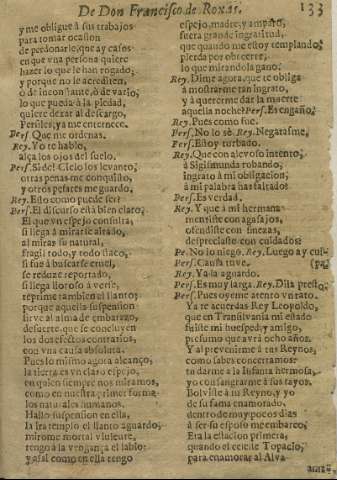 De Don Francisco de Roxas. 133
y me obligue à sus trabajos
para tomar ocasion
de perdonarle, que ay casos
en que vna persona quiere
hazer lo que le han rogado;
y porque no le acrediten,
ò de inconstante, ò de vario,
lo que pueda à la piedad,
quiere dexar al descargo,
Persiles, ya me enternece.
Pers. Que me ordenas.
Rey. Yo te hablo,
alça los ojos del suelo.
Pers. Si de l Cielo los levanto,
otras penas me conquisto,
y otros pesares me guardo,
Rey. Esto como puede ser?
Pers. El discurso està bien claro;
El que vn espejo consulta,
si llega à mirarse airado,
al miras su natural,
fragil todo, y todo flaco,
si fue à buscarse cruel,
se reduze reportado,
si llega lloroso à verse,
reprime tambien el llanto;
porque aquella suspension
sirve al alma de embaraço,
desuerte, que se concluyen
los dos efectos contrarios,
con vna causa absoluta.
Pues lo mismo aora alcanço,
la tierra es vn claro espejo,
en quien siempre nos miramos,
como en nuestra primer forma
los naturales humanos.
Hallo suspension en ella,
la ira templo, el llanto aguardo;
mirome mortal viviente,
tengo à la vengança el labio;
y assi como en ella tengo
espejo, madre, y amparo,
fuera grande ingratitud,
que quando me estoy templando,
pierda por obcecerte,
lo que mirandola gano.
Rey. Dime aora, que te obliga
à mostrarme tan ingrato,
y à quererme dar la muerte
aquella noche? Pers. Es engaño;
Rey. Pues como fue.
Pers. No lo sè. Rey. Negarasme,
Pers. Estoy turbado.
Rey. Que con alevoso intento,
à Sigismunda robando,
ingrato à mi obligacion;
à mi palabra has faltado?
Pers. Es verdad.
Rey. Y que à mi hermana
mentiste con agasajos,
ofendiste con finezas,
despreciaste con cuidados?
Pe. No lo niego. Rey. Luego ay cul-
Pers. Causa tuve. (pa;
Rey. Ya la aguardo.
Pers. Es muy larga. Rey. Dila presto;
Pers. Pues oyeme atento vn rato.
Ya te acuerdas Rey Leopoldo,
que en Transilvania mi estado
fuiste mi huesped, y amigo,
presumo que avrà ocho años.
Y al prevenirme à tus Reynos,
como sabes concertamos:
tu darme a la Infanta hermosa,
yo consangrarme à sus rayos.
Bolviste à tu Reyno, y yo
de su fama enamorado,
dentro de muy pocos dias
à ser su esposo me embarco;
Era la estacion primera,
quando el celeste Topacio,
para enamorar al Alva